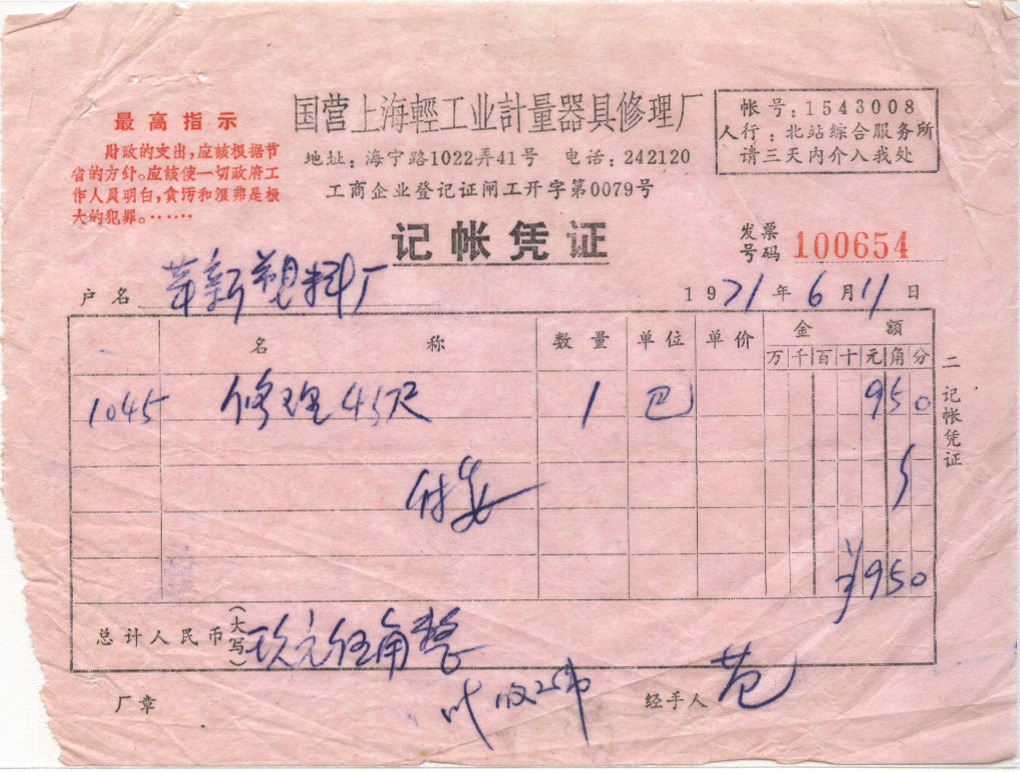 国营上海輕工业計量器具修理厂
地址：海宁路1022弄41号 电话：242120
工商企业登记证闸工开字第0079号
最高指示
财政的支出，应该根据节
省的方针。应该使一切政府工
作人员明白，贪污和浪费是极
大的犯罪。……
帐号：1543008
人行：北站综合服务所
请三天内介入我处
记帐凭证
发票号码 100654
户名 革新塑料厂
1971年6月11日
名称 数量 单位 单价 金额
万千百十元角分
1045 修理45尺 1 巴 950
付安
¥950
总计人民币（大写）玖元伍角整
厂章 经手人 范
二 记帐凭证